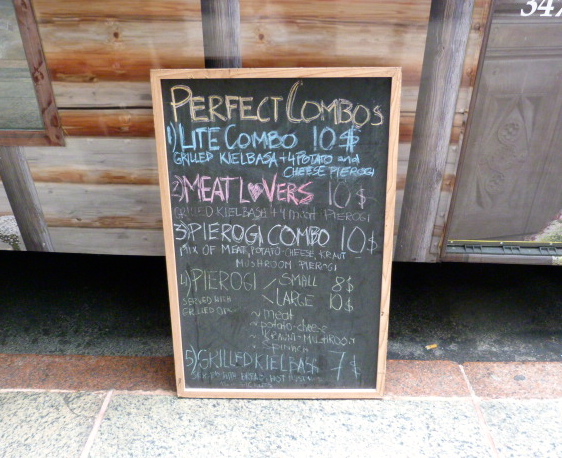 347
PERFECT COMBOS
1) LITE COMBO 10$
GRILLED KIELBASA + 4 POTATO and
CHEESE PIEROGI
2) MEAT LOVERS 10$
GRILLED KIELBASA + 4 meat PIEROGI
3) PIEROGI COMBO 10$
MIX OF MEAT, POTATO-CHEESE, KRAUT
MUSHROOM PIEROGI
4) PIEROGI SMALL 8$
SERVED WITH LARGE 10$
GRILLED
~ meat
~ potato-cheese
~ KRAUT-MUSHROOM
~ SPINACH
5) GRILLED KIELBASA 7$
WITH